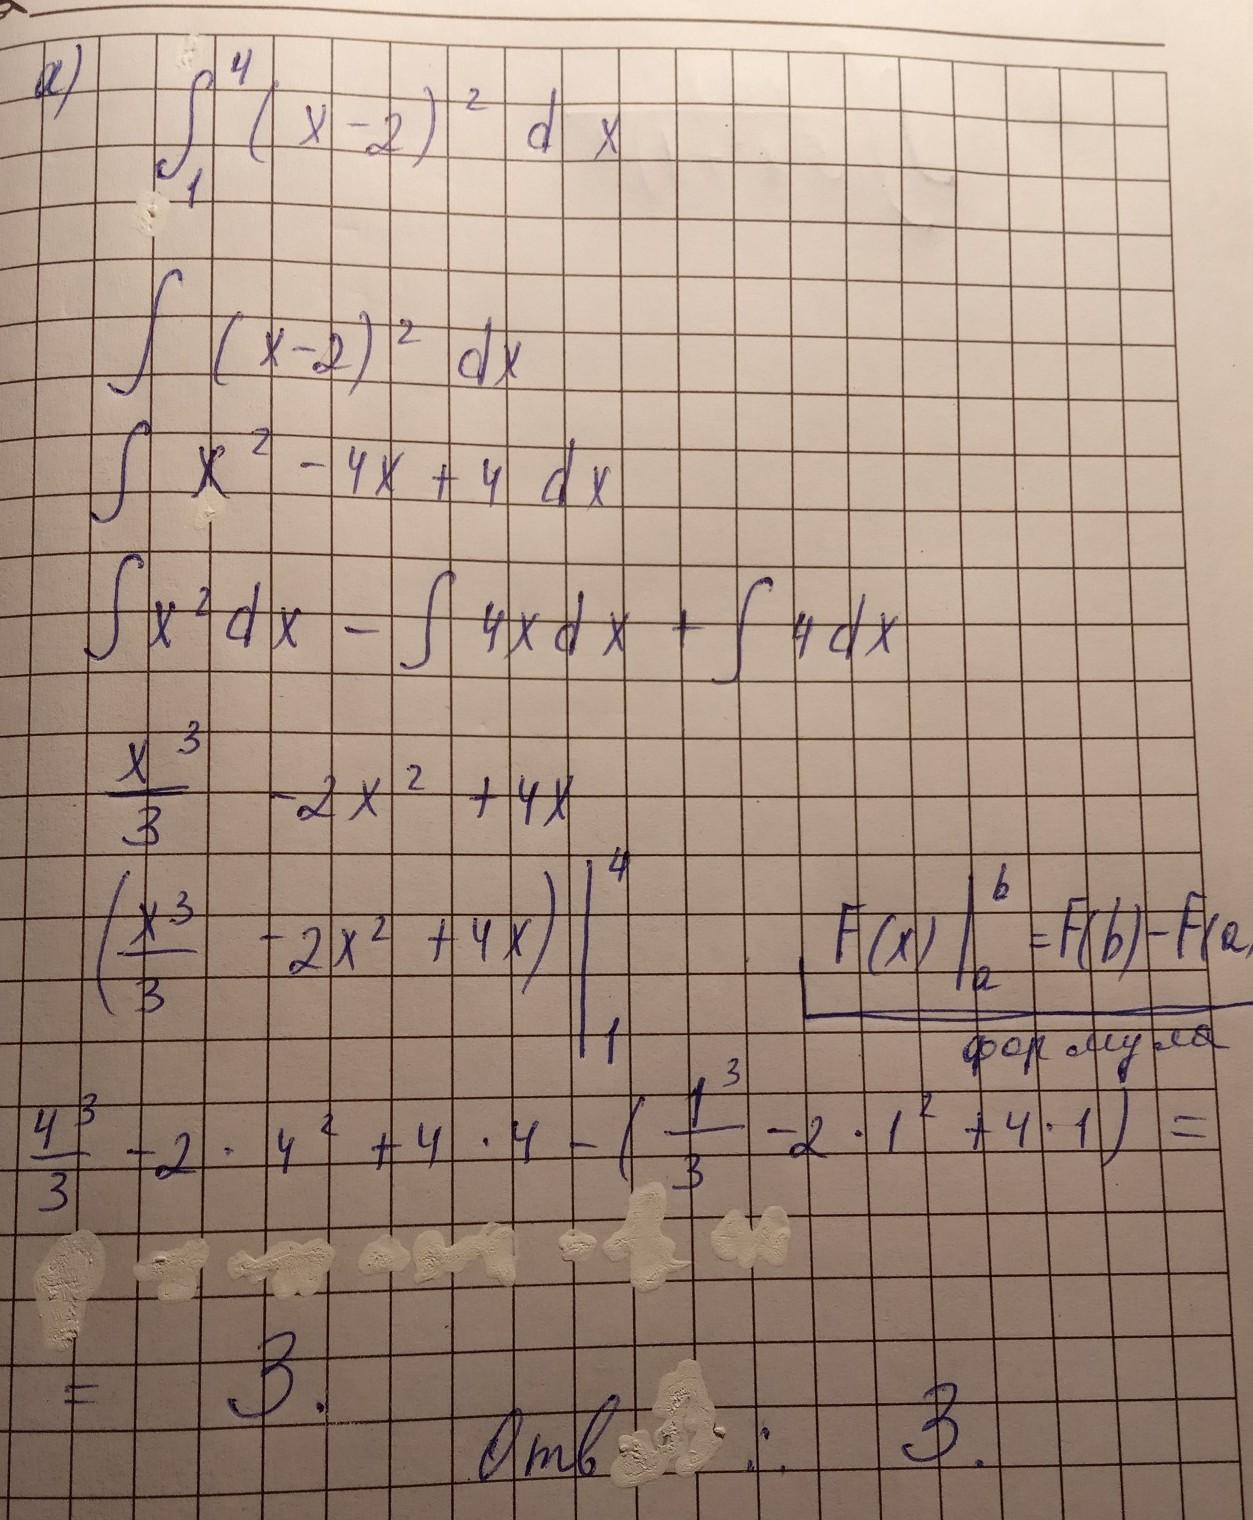 а) ∫₁⁴ (x-2)² dx
∫ (x-2)² dx
∫ x² - 4x + 4 dx
∫ x² dx - ∫ 4x dx + ∫ 4 dx
x³/3 - 2x² + 4x
(x³/3 - 2x² + 4x) |₁⁴
F(x) |ₐᵇ = F(b) - F(a)
формула
4³/3 - 2 · 4² + 4 · 4 - (1³/3 - 2 · 1² + 4 · 1) =
= 3.
Отв : 3.